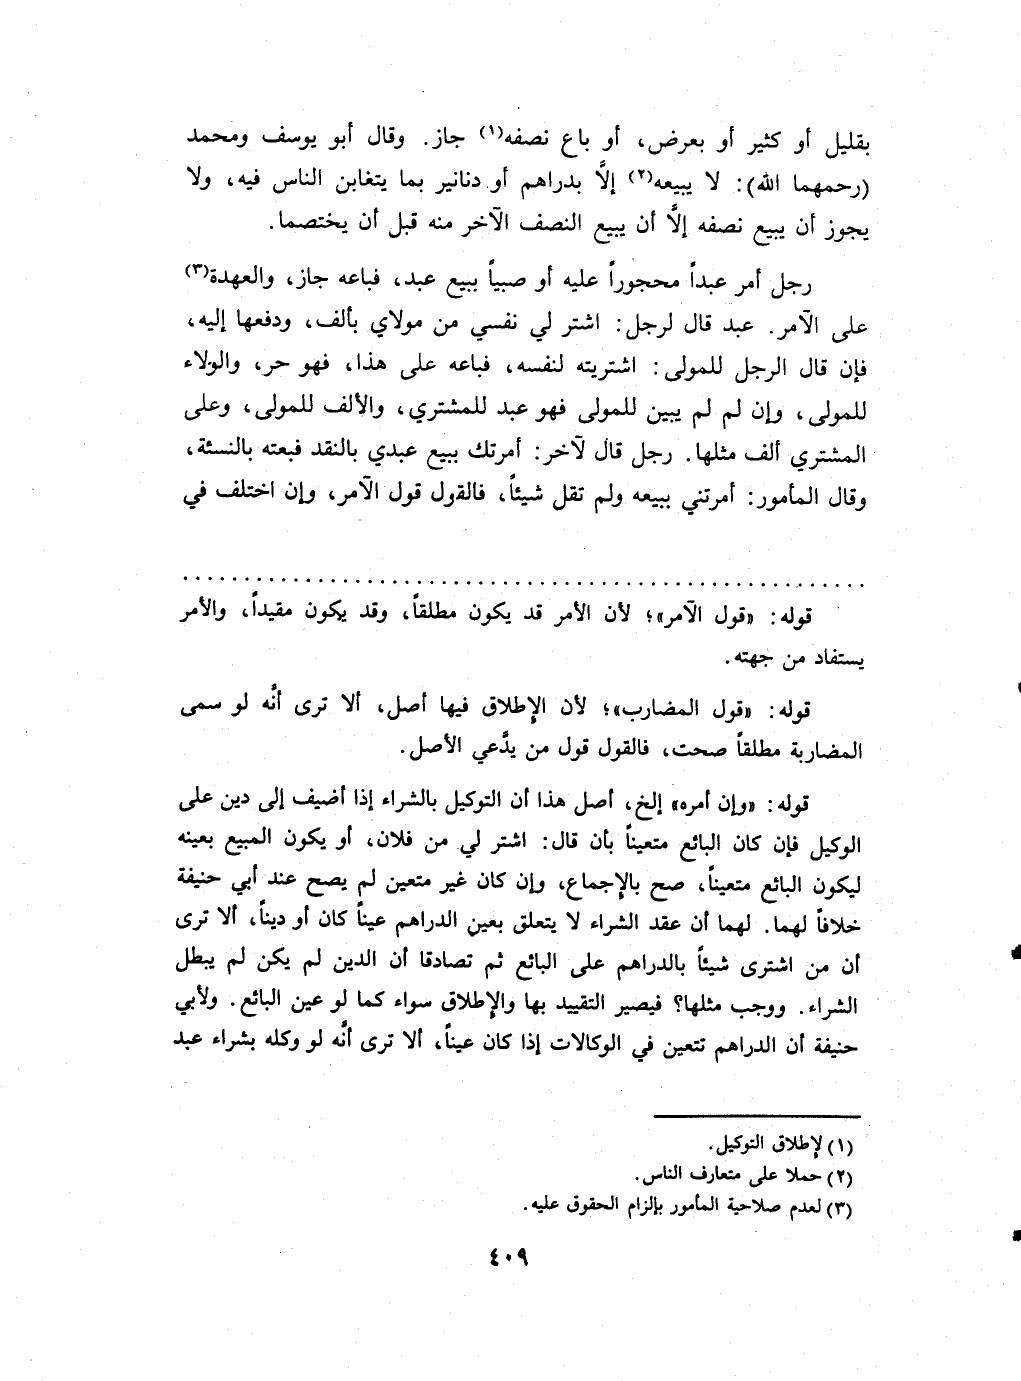 بقليل أو كثير أو بعرض، أو باع نصفه(١) جاز. وقال أبو يوسف ومحمد
(رحمهما الله): لا يبيعه(٢) إلَّا بدراهم أو دنانير بما يتغابن الناس فيه، ولا
يجوز أن يبيع نصفه إلَّا أن يبيع النصف الآخر منه قبل أن يختصما.
رجل أمر عبداً محجوراً عليه أو صبياً ببيع عبد، فباعه جاز، والعهدة(٣)
على الآمر. عبد قال لرجل: اشتر لي نفسي من مولاي بألف، ودفعها إليه،
فإن قال الرجل للمولى: اشتريته لنفسه، فباعه على هذا، فهو حر، والولاء
للمولى، وإن لم لم يبين للمولى فهو عبد للمشتري، والألف للمولى، وعلى
المشتري ألف مثلها. رجل قال لآخر: أمرتك ببيع عبدي بالنقد فبعته بالنسئة،
وقال المأمور: أمرتني ببيعه ولم تقل شيئاً، فالقول قول الآمر، وإن اختلف في
قوله: «قول الآمر»؛ لأن الأمر قد يكون مطلقاً، وقد يكون مقيداً، والأمر
يستفاد من جهته.
قوله: «قول المضارب»؛ لأن الإطلاق فيها أصل، ألا ترى أنَّه لو سمى
المضاربة مطلقاً صحت، فالقول قول من يدَّعي الأصل.
قوله: «وإن أمره» إلخ، أصل هذا أن التوكيل بالشراء إذا أضيف إلى دين على
الوكيل فإن كان البائع متعيناً بأن قال: اشتر لي من فلان، أو يكون المبيع بعينه
ليكون البائع متعيناً، صح بالإجماع، وإن كان غير متعين لم يصح عند أبي حنيفة
خلافاً لهما. لهما أن عقد الشراء لا يتعلق بعين الدراهم عيناً كان أو ديناً، ألا ترى
أن من اشترى شيئاً بالدراهم على البائع ثم تصادقا أن الدين لم يكن لم يبطل
الشراء. ووجب مثلها؟ فيصير التقييد بها والإطلاق سواء كما لو عين البائع. ولأبي
حنيفة أن الدراهم تتعين في الوكالات إذا كان عيناً، ألا ترى أنَّه لو وكله بشراء عبد
(١) لإطلاق التوكيل.
(٢) حملا على متعارف الناس.
(٣) لعدم صلاحية المأمور بإلزام الحقوق عليه.
٤٠٩